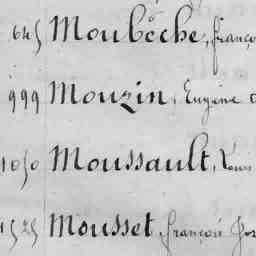 645 Moubèche, franço
999 Mouzin, Eugène
1050 Moussault, Louis
1525 Mousset, françois Jos